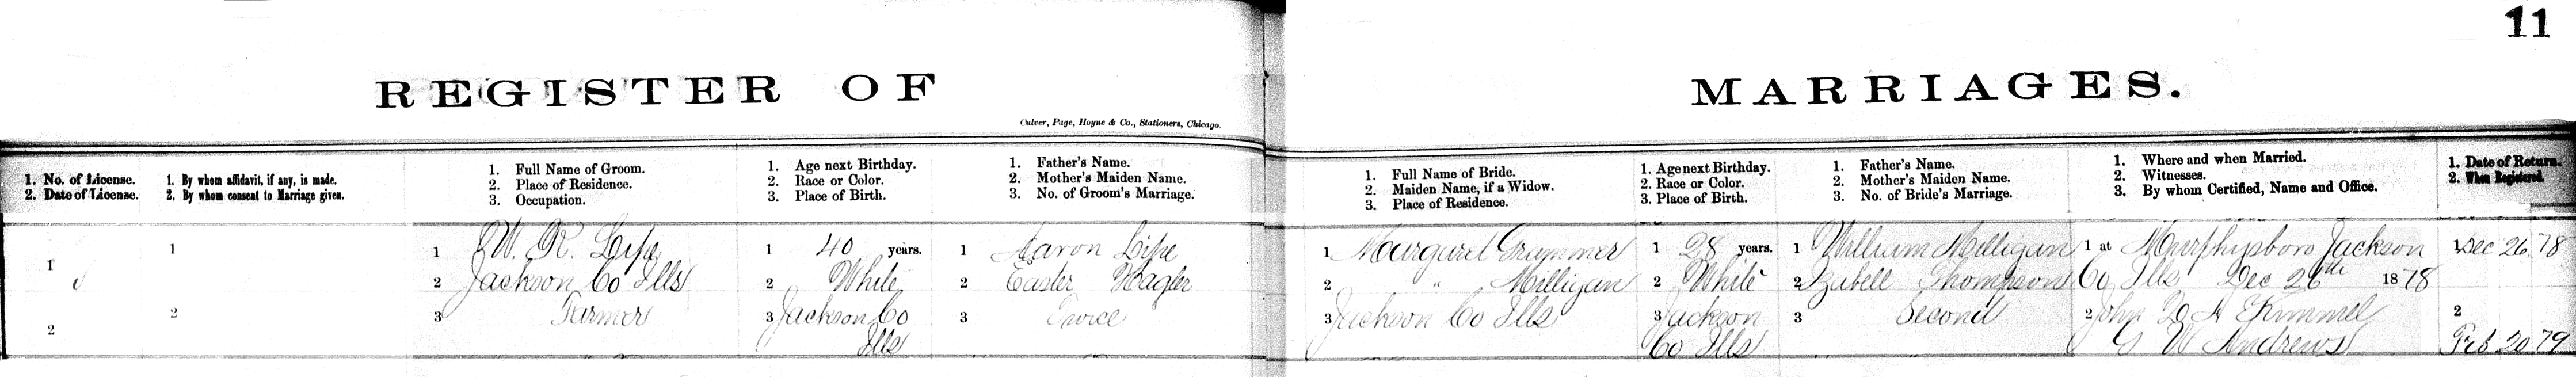 11
REGISTER OF MARRIAGES.
Culver, Page, Hoyne & Co., Stationers, Chicago.
1. No. of License.
2. Date of License.
1. By whom affidavit, if any, is made.
2. By whom consent to Marriage given.
1. Full Name of Groom.
2. Place of Residence.
3. Occupation.
1. Age next Birthday.
2. Race or Color.
3. Place of Birth.
1. Father's Name.
2. Mother's Maiden Name.
3. No. of Groom's Marriage.
1. Full Name of Bride.
2. Maiden Name, if a Widow.
3. Place of Residence.
1. Age next Birthday.
2. Race or Color.
3. Place of Birth.
1. Father's Name.
2. Mother's Maiden Name.
3. No. of Bride's Marriage.
1. Where and when Married.
2. Witnesses.
3. By whom Certified, Name and Office.
1. Date of Return.
2. When Registered.
1
2
1
2
1 W. R. Lipe
2 Jackson Co Ills
3 Farmer
1 40 years.
2 White
3 Jackson Co
Ills
1 Aaron Lipe
2 Easter Hagler
3 Twice
1 Margaret Grammer
2 " Milligan
3 Jackson Co Ills
1 28 years.
2 White
3 Jackson
Co Ills
1 William Milligan
2 Izabell Thompson
3 Second
1 at Murphysboro Jackson
Co Ills Dec 26th 1878
2 John Q A Kimmel
G W Andrews
1 Dec 26 78
2
Feb 20 79